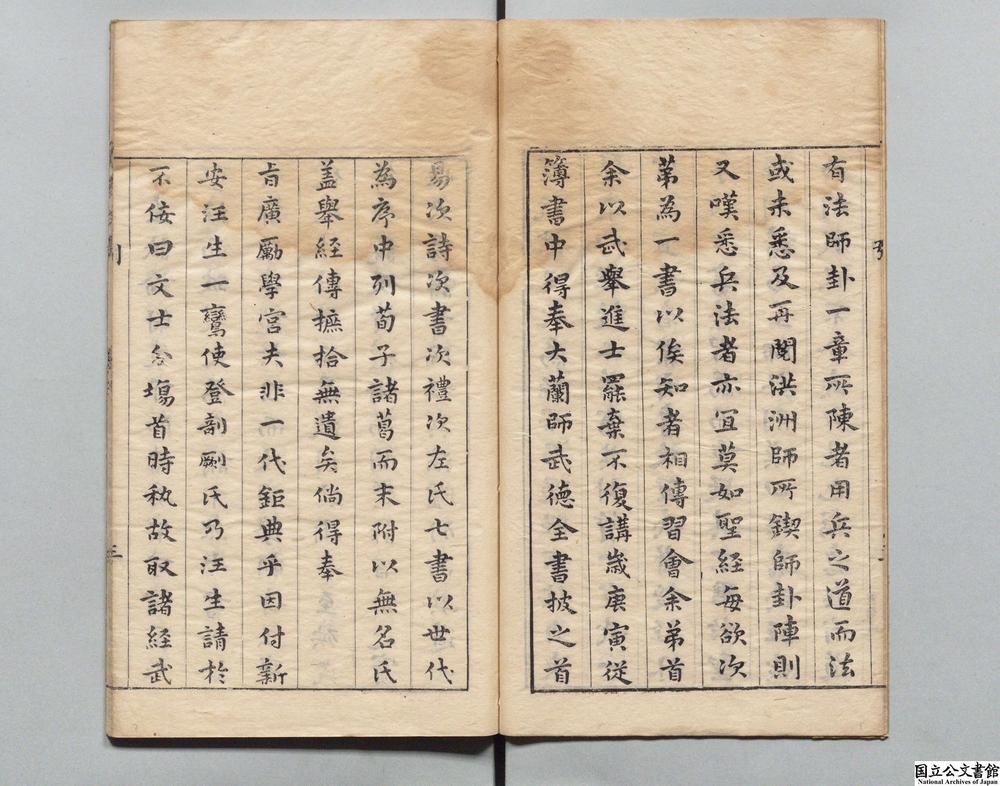 有法師卦一章所陳者用兵之道而法
或未悉及再閱洪洲師所鍥師卦陣則
又嘆悉兵法者亦宜莫如聖經每欲次
苐為一書以俟知者相傳習會余弟首
余以武舉進士罷棄不復講歲庚寅從
簿書中得奉大蘭師武德全書披之首
易次詩次書次禮次左氏七書以世代
為序中列荀子諸葛而末附以無名氏
盖舉經傳摭拾無遺矣倘得奉
旨廣勵學宮夫非一代鉅典乎因付新
安汪生一鸞使登剞劂氏乃汪生請於
不佞曰文士分塲首時秇故取諸經武
国立公文書館
National Archives of Japan